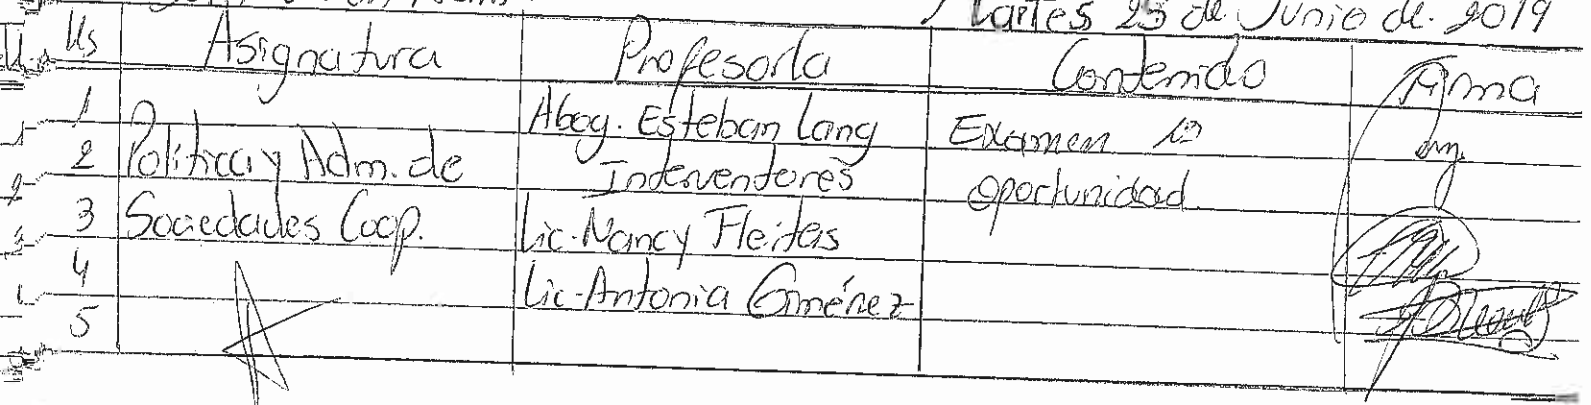 Martes 25 de Junio de. 2019
Hs Asignatura Profesor/a Contenido Firma
1 Abog. Esteban Lang Examen 1º
2 Política y Adm. de Interventores oportunidad.
3 Sociedades Coop. Lic. Nancy Fleitas
4 Lic. Antonia Giménez
5